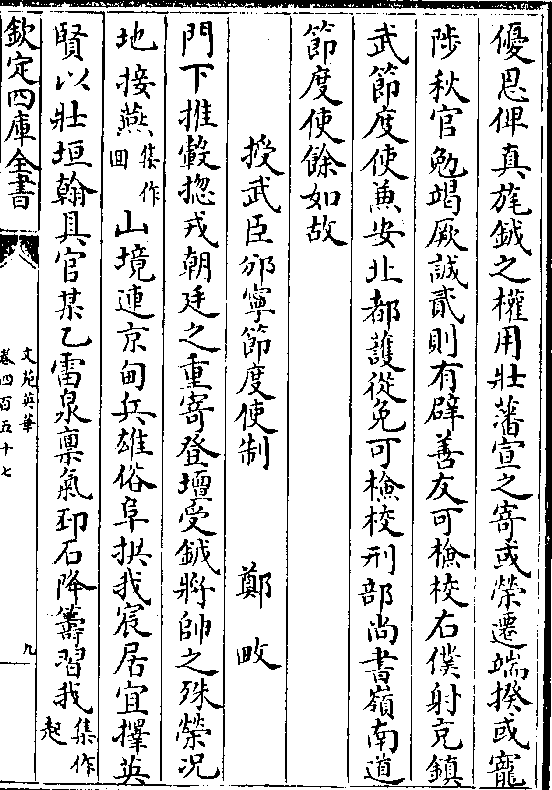 優恩俾真旄鉞之權用壯藩宣之寄或榮遷端揆或寵
陟秋官勉竭厥誠貳則有辟善友可檢校右僕射充鎮
武節度使兼安北都護從免可檢校刑部尚書嶺南道
節度使餘如故
授武臣邠寧節度使制 鄭畋
門下推轂揔戎朝廷之重寄登壇受鉞將帥之殊榮况
地接燕集作囬山境連京甸兵雄俗阜拱我宸居宜擇英
賢以壯垣翰具官某乙雷泉禀氣圯石降籌習我集作起
欽定四庫全書
文苑英華
卷四百五十七
九